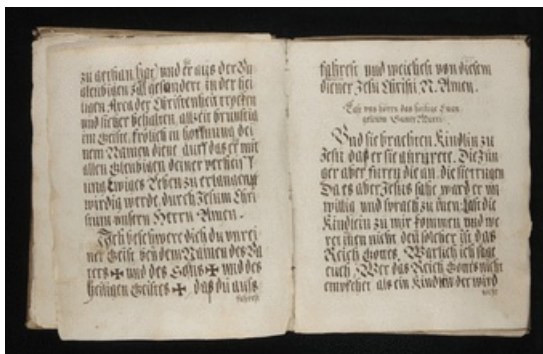 zu gethan hat) und er aus der Un
gleubigen zall gesondert, in der hei
ligen Arca der Christenheit trocken
und sicher behalten, allzeit brunstig
im Geist, frölich in hoffnung dei
nem Namen diene auff das er mit
allen Gleubigen deiner verheiss
ung Ewiges Leben zu erlangen
wirdig werde, durch Jesum Chri
stum unsern Herrn Amen.
Ich beschwere dich du unrei
ner Geist bei dem Namen des Va
ters ✠ und des Sons ✠ und des
heiligen Geistes ✠, das du auss
fahrest
fahrest und weichest von diesem
diener Jesu Christi N. Amen.
Last uns hören das heilige Euan
gelium Marci
Und sie brachten Kindlin zu
Jesu das er sie anrurete. Die Jün
ger aber furen die an, die sie trugen
Da es aber Jesus sahe, ward er un
willig und sprach zu inen: Last die
Kindlein zu mir kommen und we
ret inen nicht den solcher ist das
Reich Gottes. Warlich ich sage
euch, Wer das Reich Gottes nicht
empfehet als ein Kindlin der wird
nicht